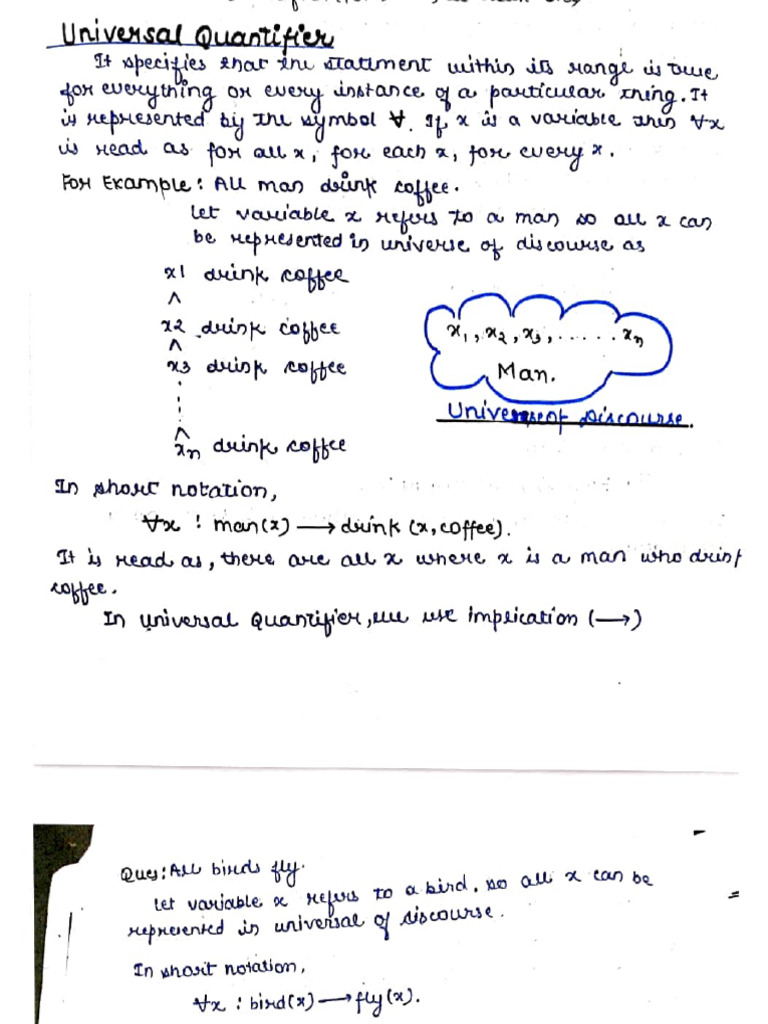 Universal Quantifier
It specifies that the statement within its range is true
for everything or every instance of a particular thing. It
is represented by the symbol ∀. If x is a variable then ∀x
is read as for all x, for each x, for every x.
For Example: All man drink coffee.
Let variable x refers to a man so all x can
be represented in universe of discourse as
x1 drink coffee
∧
x2 drink coffee
∧
x3 drink coffee
∧
xn drink coffee
x1, x2, x3, ...... xn
Man.
Universe of Discourse.
In short notation,
∀x : man(x) ⟶ drink (x, coffee).
It is read as, there are all x where x is a man who drink
coffee.
In Universal Quantifier, we use implication (⟶)
Ques: All birds fly.
Let variable x refers to a bird. so all x can be
represented in universal of discourse.
In short notation,
∀x : bird(x) ⟶ fly(x).